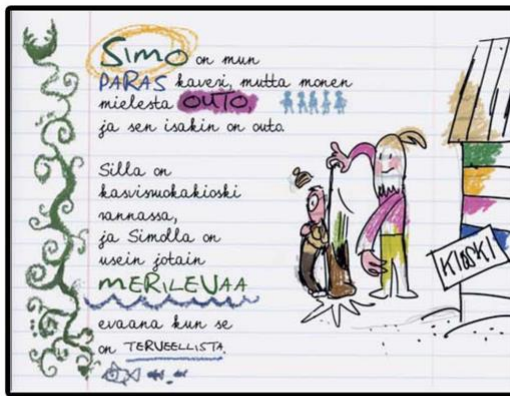 SIMO on mun
PARAS kaveri, mutta monen
mielesta OUTO,
ja sen isakin on outo.
Silla on
kasvisruokakioski
rannassa,
ja Simolla on
usein jotain
MERILEVAA
evaana kun se
on TERVEELLISTA.
KIOSKI